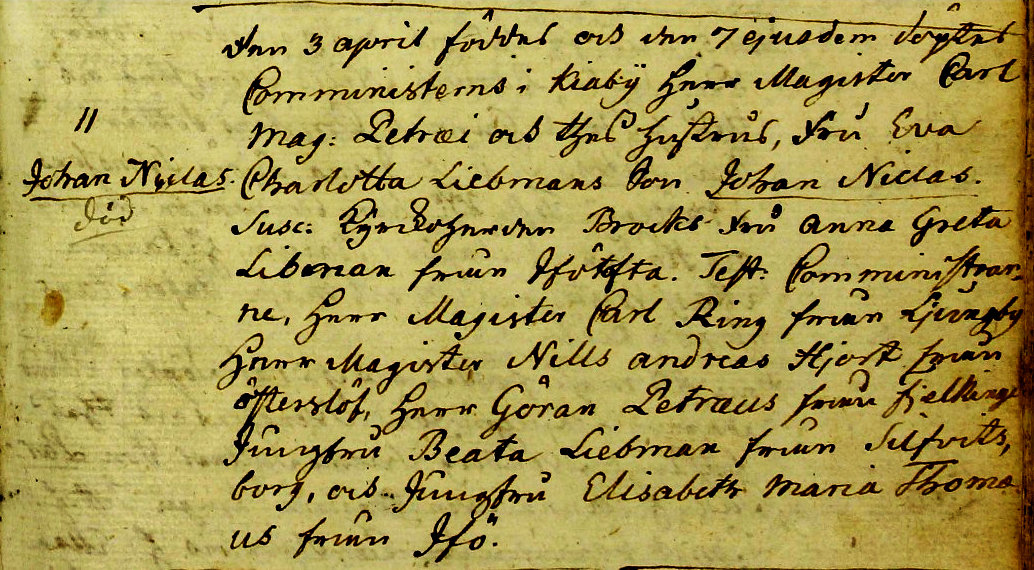 den 3 april föddes och den 7 ejusdem döptes
Comministerns i Kiaby Herr Magister Carl
11
Mag: Petræi och thes hustrus, Fru Eva
Johan Niclas. Charlotta Liebmans Son Johan Niclas.
död
Susc: Kyrckoherden Brocks Fru Anna Greta
Libman från Ifötofta. Test: Comministrar-
ne, Herr Magister Carl Ring från Ljungby
Herr Magister Nills Andreas Hjort från
Österslöf, Herr Göran Petræus från Fjelkinge
Jungfru Beata Liebman från Silfvits,
borg, och Jungfru Elisabeth Maria Thomæ
us från Ifö.